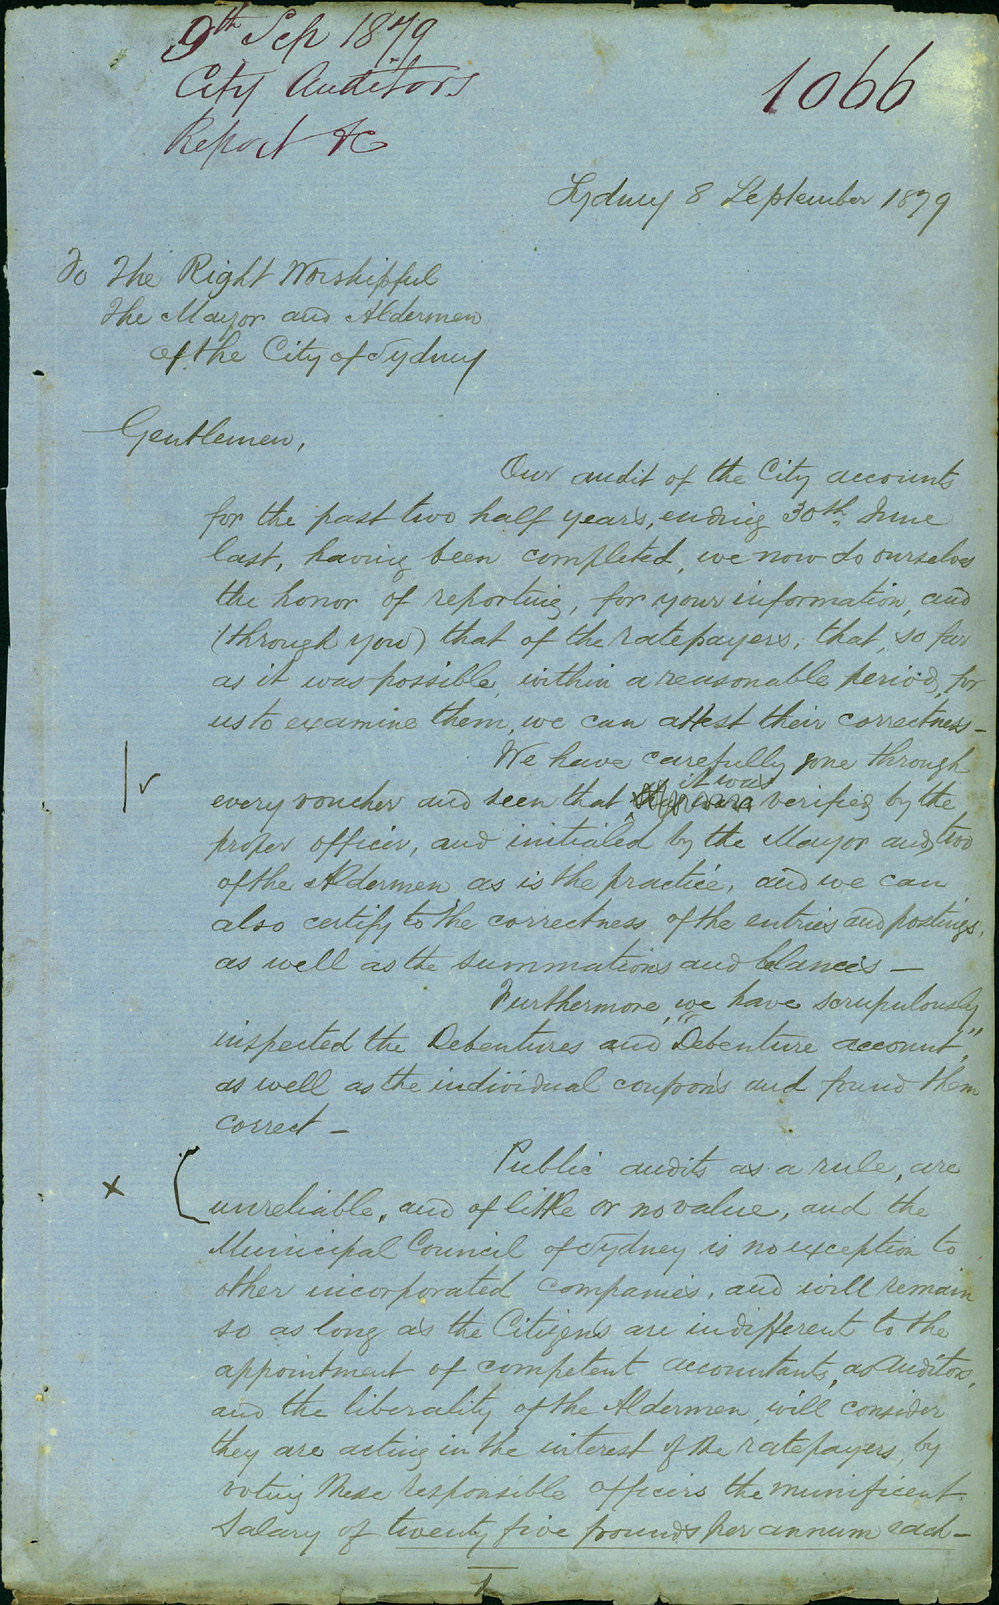 9th Sep 1879
City Auditors
Report &c
1066
Sydney 8 September 1879
To The Right Worshipful
The Mayor and Aldermen
of the City of Sydney
Gentlemen,
Our audit of the City accounts
for the past two half years, ending 30th June
last, having been completed, we now do ourselves
the honor of reporting, for your information, and
(through you) that of the ratepayers, that, so far
as it was possible, within a reasonable period, for
us to examine them, we can attest their correctness –
We have carefully gone through
it was
every voucher and seen that they were verified by the
proper officer, and initialed by the Mayor and two
of the Aldermen as is the practice, and we can
also certify to the correctness of the entries and postings,
as well as the summations and balances –
Furthermore, we have scrupulously
inspected the Debentures and "Debenture account,"
as well as the individual coupons and found them
correct –
x
Public audits as a rule, are
unreliable, and of little or no value, and the
Municipal Council of Sydney is no exception to
other incorporated companies, and will remain
so as long as the Citizens are indifferent to the
appointment of competent accountants, as Auditors,
and the liberality of the Aldermen will consider
they are acting in the interest of the ratepayers, by
voting these responsible officers the munificent
Salary of twenty five pounds per annum each –
1